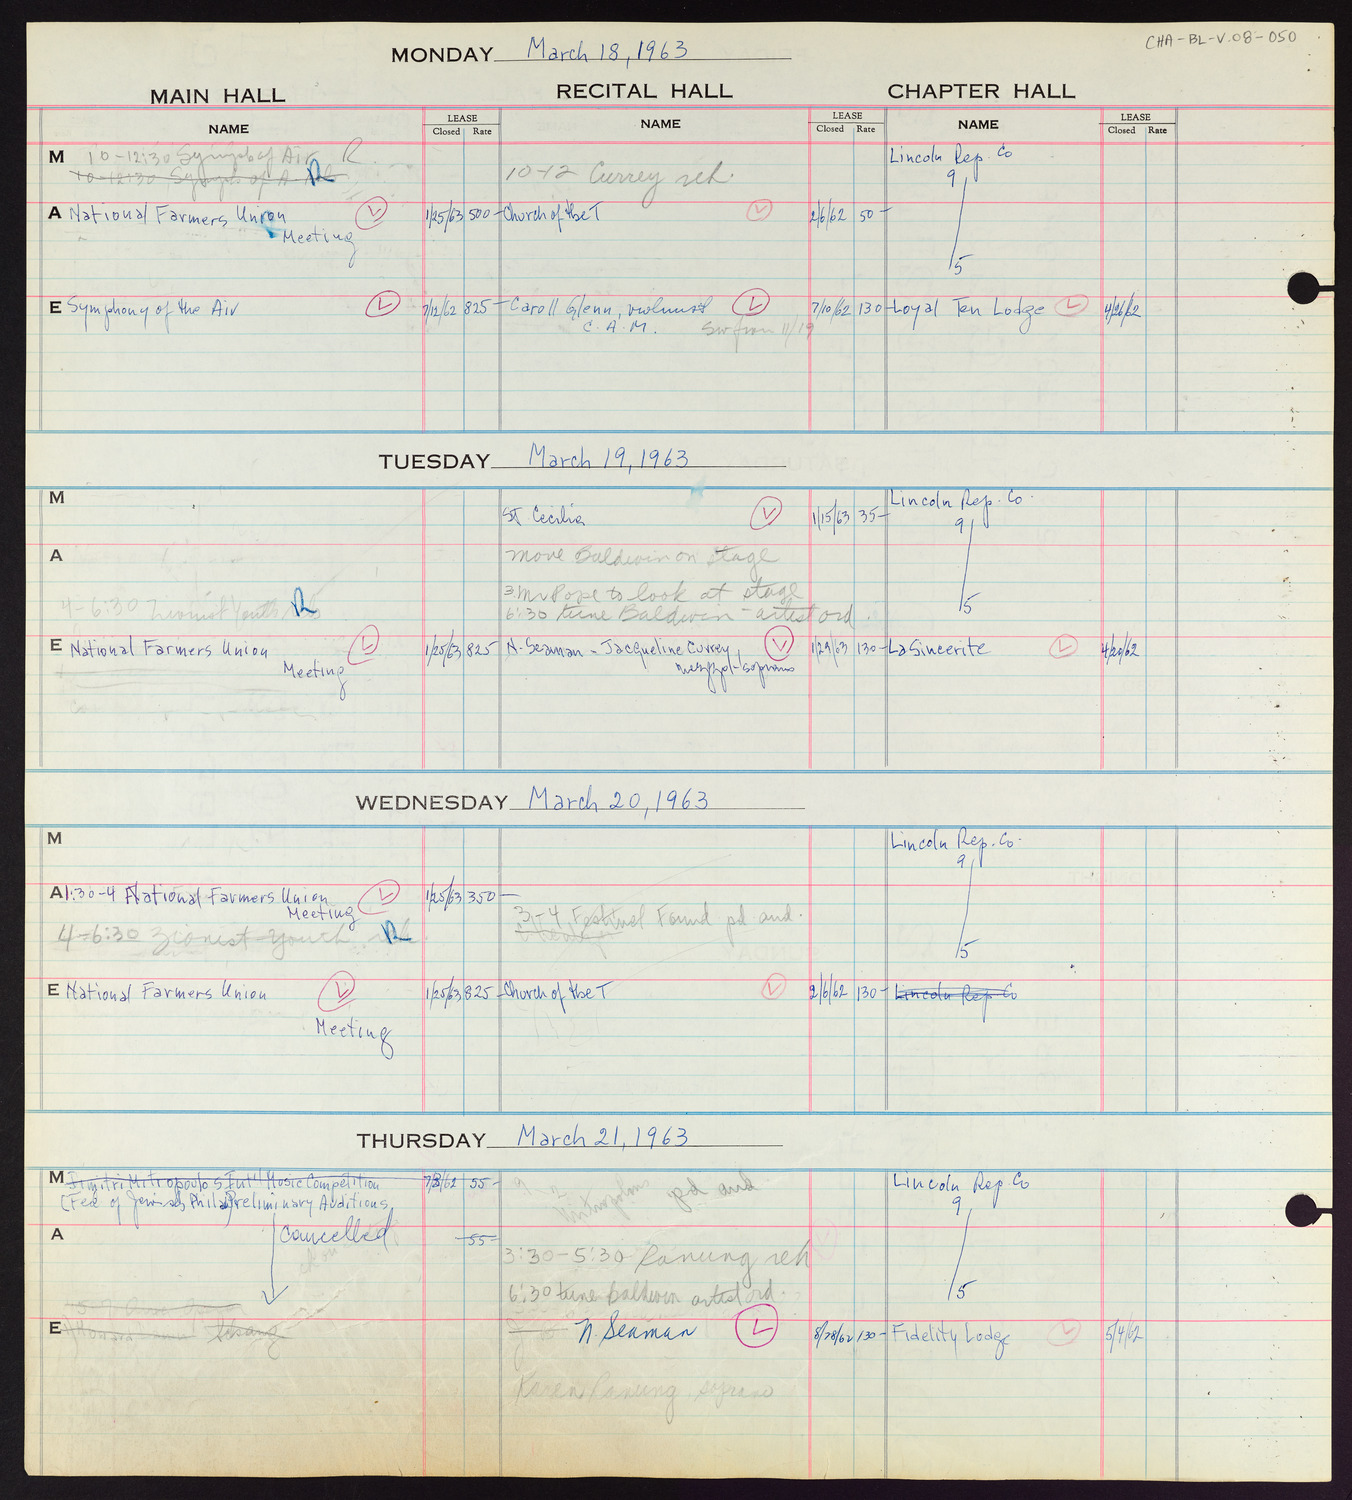 CHA-BL-V.08-050
MONDAY March 18, 1963
MAIN HALL RECITAL HALL CHAPTER HALL
NAME LEASE Closed Rate NAME LEASE Closed Rate NAME LEASE Closed Rate
M 10-12:30 Symph of Air R
10-12:30 Symph of A R
10-12 Currey reh.
Lincoln Rep. Co
9
5
A National Farmers Union L 1/25/63 500-
Meeting
Church of the T L 2/6/62 50-
E Symphony of the Air L 7/12/62 825-
Caroll Glenn, violinist L 7/10/62 130-
C.A.M. Sw from 11/19
Loyal Ten Lodge L 4/26/62
TUESDAY March 19, 1963
M
St Cecilia L 1/15/63 35-
Lincoln Rep. Co.
9
5
A
move Baldwin on stage
3 Mr Pope to look at stage
4-6:30 Zionist Youth R
6:30 tune Baldwin - artist ord
E National Farmers Union L 1/25/63 825
Meeting
N. Seaman - Jacqueline Currey, L 1/29/63 130-
mezzo-soprano
LaSincerite L 4/20/62
WEDNESDAY March 20, 1963
M
Lincoln Rep. Co.
9
5
A 1:30-4 National Farmers Union L 1/25/63 350-
Meeting
4-6:30 Zionist Youth R
3-4 Festival Found pd aud.
E National Farmers Union L 1/25/63 825-
Meeting
Church of the T L 2/6/62 130-
Lincoln Rep Co
THURSDAY March 21, 1963
M Dimitri Mitropoulos Int'l Music Competition 7/3/62 55-
(Fed of Jewish Phila) Preliminary Auditions
cancelled
pd aud.
Lincoln Rep. Co
9
5
A
55-
3:30-5:30 Ranung reh
6:30 tune Baldwin artist ord.
E
N. Seaman L 8/28/62 130-
Karen Ranung, soprano
Fidelity Lodge L 5/4/62